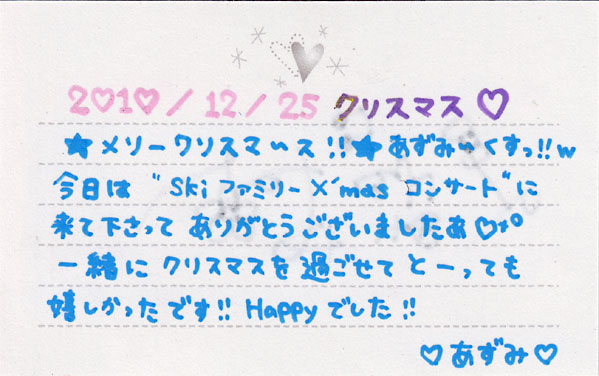 2♡1♡/12/25 クリスマス♡
★メリークリスマ〜ス!!★あずみぃくすっ!!w
今日は"Skiファミリー X'mas コンサート"に
来て下さって ありがとうございましたあ♡
一緒に クリスマスを 過ごせて とーっても
嬉しかったです!! Happyでした!!
♡あずみ♡